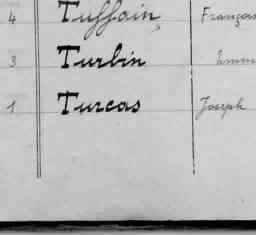 4 Tuffain François
3 Turbin
1 Turcas Joseph